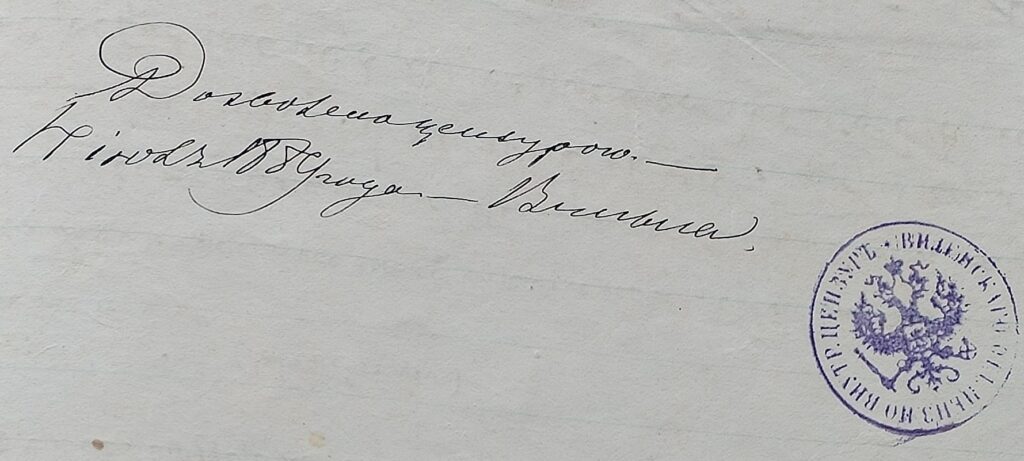 Дозволено цензурою. —
4 іюля 1889 года — Вильна.
ВИЛЕНСКАГО ОТД. ЦЕНЗ. ПО ВНУТР. ЦЕНЗУРѢ